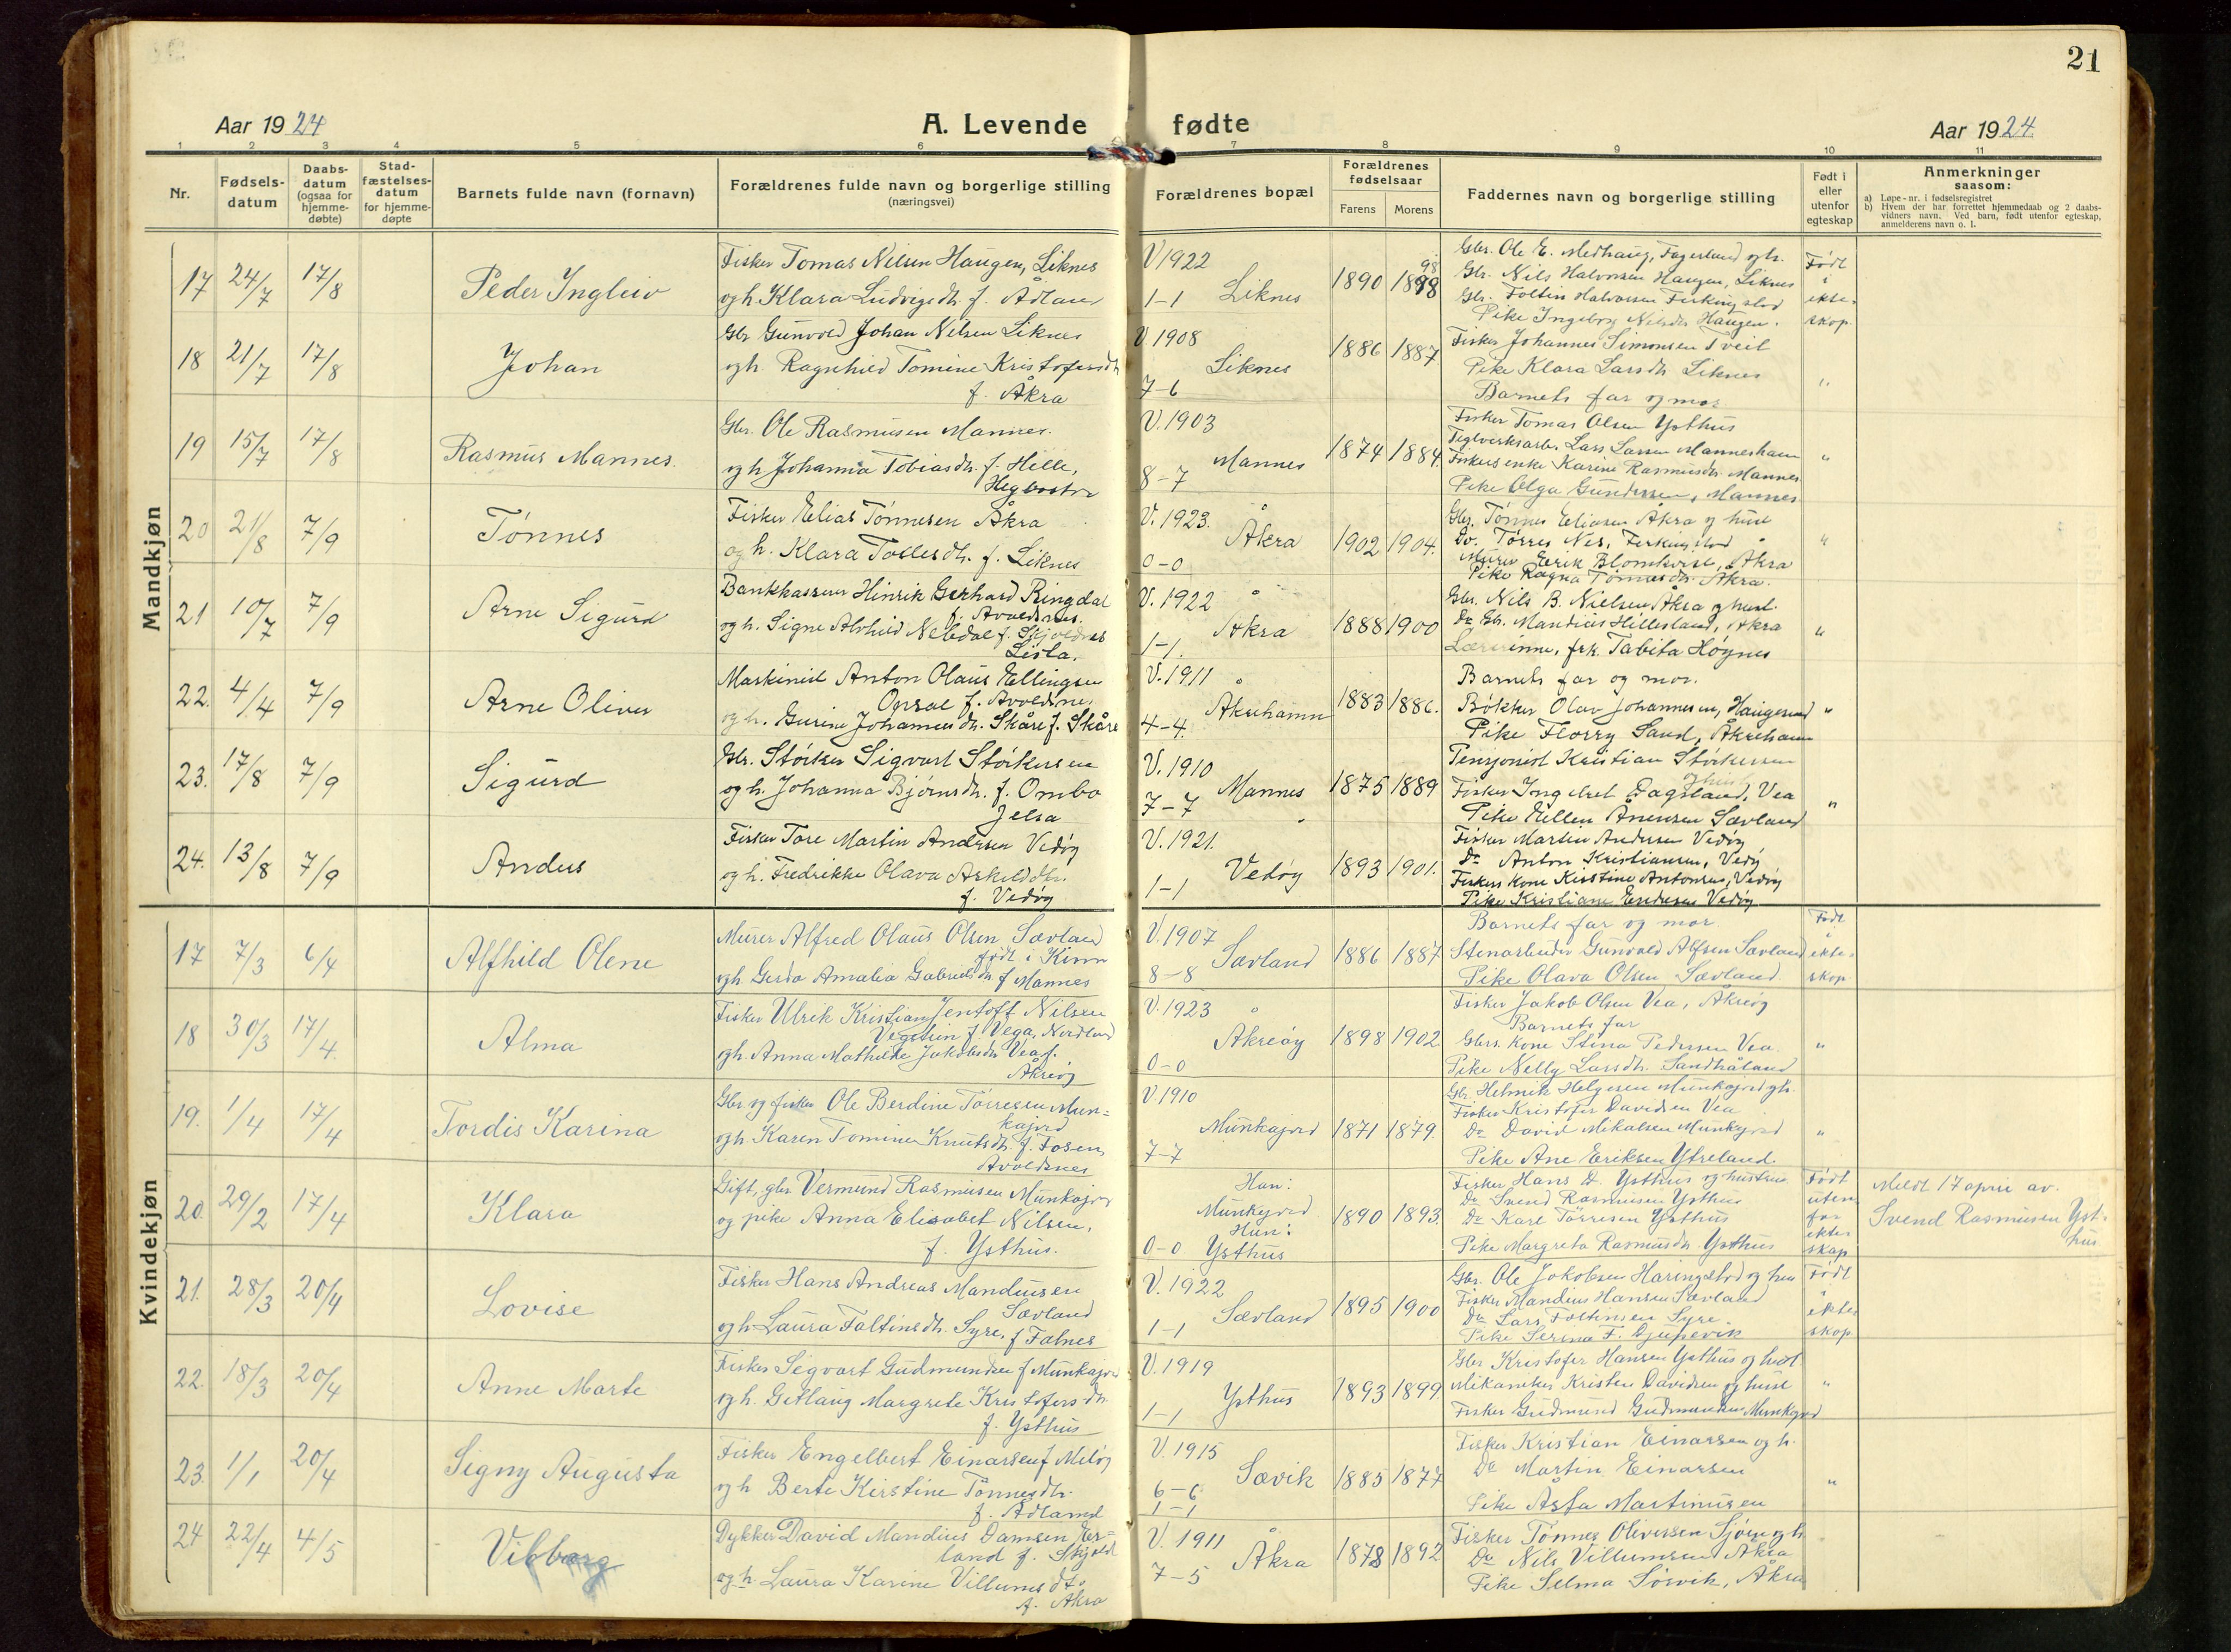 21
Aar 1924
A. Levende fødte
Aar 1924.
1 2 3 4 5 6 7 8 9 10 11
Nr.
Fødsels-
datum
Daabs-
datum
(ogsaa for
hjemme-
døbte)
Stad-
fæstelses-
datum
for hjemme-
døpte
Barnets fulde navn (fornavn)
Forældrenes fulde navn og borgerlige stilling
(næringsvei)
Forældrenes bopæl
Forældrenes
fødselsaar
Farens Morens
Faddernes navn og borgerlige stilling
Født i
eller
utenfor
egteskap
Anmerkninger
saasom:
a) Løpe-nr. i fødselsregistret
b) Hvem der har forrettet hjemmedaab og 2 daabs-
vidners navn. Ved barn, født utenfor egteskap,
anmelderens navn o. l.
Mandkjøn
17 24/7 17/8 Peder Ingleiv
Fisker Tomas Nilsen Haugen, Liknes
og h. Klara Ludvigsdtr. f. Ådland
V 1922
1-1 Liknes 1890 1898
Gbr. Ole E. Medhaug, Fagerland og h.
Gbr. Nils Halvorsen Haugen, Liknes
Gbr. Foltin Halvorsen Ferkingstad
Pike Ingeborg Nilsdtr Haugen.
Født
i
ekte-
skap.
18 21/7 17/8 Johan
Gbr Gunvald Johan Nilsen Liknes
og h Ragnhild Tomine Kristofersdtr
f. Åkra
V. 1908
Liknes
7-6
1886 1887
Fisker Johannes Simonsen Tveit
Pike Klara Larsdtr Liknes
Barnets far og mor
"
19 15/7 17/8 Rasmus Mannes.
Gbr. Ole Rasmusen Mannes.
og h Johanna Tobiasdtr. f. Helle,
V. 1903
Mannes
8-7
1874 1884.
Fisker Tomas Olsen Ysthus
Teglverksarb. Lars Larsen Manneshavn
Fiskers enke Karine Rasmusdtr Mannes
Pike Olga Gundersen, Mannes
"
20 21/8 7/9 Tønnes
Fisker Elias Tønnesen Åkra
og h. Klara Tollesdtr. f. Liknes
V. 1923.
Åkra
0-0
1902 1904.
Gbr. Tønnes Eliasen Åkra og hust
Do. Tørres Nes, Ferkingstad
Murer Erik Blomkvist, Åkra
Pike Ragna Tønnesdtr. Åkra.
"
21 10/7 7/9 Arne Sigurd
Bankkasserer Hinrik Gerhard Ringdal
f. Avaldsnes.
og h. Signe Alvhild Nebdal f.
Lista.
V. 1922
Åkra
1-1.
1888 1900
Gbr. Nils B. Nielsen Åkra og hust.
Do Gb. Mandius Hillesland, Åkra
Lærerinne, frk. Tabita Høynes
"
22. 4/4 7/9 Arne Oliver
Maskinist Anton Olaus Ellingsen
f. Avaldsnes,
og h. Gurine Johannesdtr. Skåre f. Skåre
V. 1911
Åkrehamn
4-4.
1883 1886.
Barnets far og mor.
Bøkker Olav Johannesen, Haugesund
Pike Florry Sand, Åkrehamn
"
23. 17/8 7/9 Sigurd
Gbr. Størker Sigvart Størkersen
og h. Johanna Bjørnsdtr. f. Ombo
Jelsa
V. 1910
Mannes
7-7
1875 1889
Pensjonist Kristian Størkersen
Fisker Ingebret Dagsland, Vea
Pike Ellen Anensen Sævland
"
24. 13/8 7/9 Anders
Fisker Tore Martin Andersen Vedøy
og h. Fredrikke Olava Askelddtr.
f. Vedøy
V. 1921.
Vedøy
1-1
1893 1901.
Fisker Martin Andersen Vedøy
Do Anton Kristiansen, Vedøy
Fiskers kone Kirstine Antonsen, Vedøy
Pike Kristiane Vedøy
Kvindekjøn
17 7/3 6/4 Alfhild Olene
Murer Alfred Olaus Olsen Sævland
født i Kinn
og h Gerda Amalia Gabrielsdtr f Mannes
V. 1907
Sævland
8-8
1886 1887.
Barnets far og mor.
Stenarbeider Gunvald Alfsen Sævland
Pike Olava Olsen Sævland
Født
i
ekte-
skap
18 30/3 17/4. Alma
Fisker Ulrik Kristian Jentoft Nilsen
Vegstein f. Vega, Nordland
og h. Anna Mathilde Jakobsdtr Vea f.
Åkreøy
V. 1923
Åkreøy
0-0
1898 1902
Fisker Jakob Olsen Vea, Åkreøy
Barnets far
Gbrs. kone Stina Pedersen Vea.
Pike Nelly Larsdtr. Sandhåland
"
19. 1/4 17/4 Tordis Karina
Gbr og fisker Ole Berdine Tørresen Mun-
kajord
og h. Karen Tomine Knutsdtr. f. Fosen,
Avaldsnes
V. 1910
Munkajord
7-7
1871 1879.
Gbr. Helmik Helgesen Munkajord og h.
Fisker Kristofer Davidsen Vea
Do David Mikalsen Munkajord
Pike Ane Eriksen Ytreland.
"
20. 29/2 17/4 Klara
Gift, gbr Vermund Rasmusen Munkajord
og pike Anna Elisabet Nilsen,
f. Ysthus.
Han:
Munkejord
Hun:
0-0 Ysthus
1890 1893.
Fisker Hans D. Ysthus og hustru
Do Svend Rasmusen Ysthus
Do Karl Tørresen Ysthus
Pike Margreta Rasmusdtr Ysthus
Født
uten
for
ekte
skap
Meldt 17 april av.
Svend Rasmusen Yst-
hus
21. 28/3 20/4 Lovise
Fisker Hans Andreas Mandiusen
Sævland
og h Laura Foltinsdtr. Syre, f Falnes
V. 1922
Sævland
1-1
1895 1900
Gbr. Ole Jakobsen Haringstad og fru
Fisker Mandius Hansen Sævland
Do Lars Foltinsen Syre.
Pike Serina F. Djupevik
Født
i
ekte
skap
22. 18/3 20/4 Anne Marte
Fisker Segvart Gudmundsen f Munkajord
og h. Getlaug Margrete Kristofersdtr
f. Ysthus
V. 1919
Ysthus
1-1
1893 1899.
Gbr Kristofer Hansen Ysthus og hust
Mikaniker Kristen Davidsen og hust
Fisker Gudmund Gudmundsen Munkajord
"
23. 1/1 20/4 Signy Augusta
Fisker Engelbert Einarsen f Meløy
og h Berte Kirstine Tønnesdtr.
f. Ådland
V. 1915
Sævik
6-6
1-1
1885 1877
Fisker Kristian Einarsen og h.
Do Martin Einarsen
Pike Åsta Martinusen
"
24 22/4 4/5 Vibborg
Dykker David Mandius Damsen
land f. Skjold
og h. Laura Karine Villumsdtr
f. Åkra
V. 1911
Åkra
7-5
1878 1892
Fisker Tønnes Oliversen og h
Do Nils Villumsen Åkra
Pike Selma Sørvik, Åkra